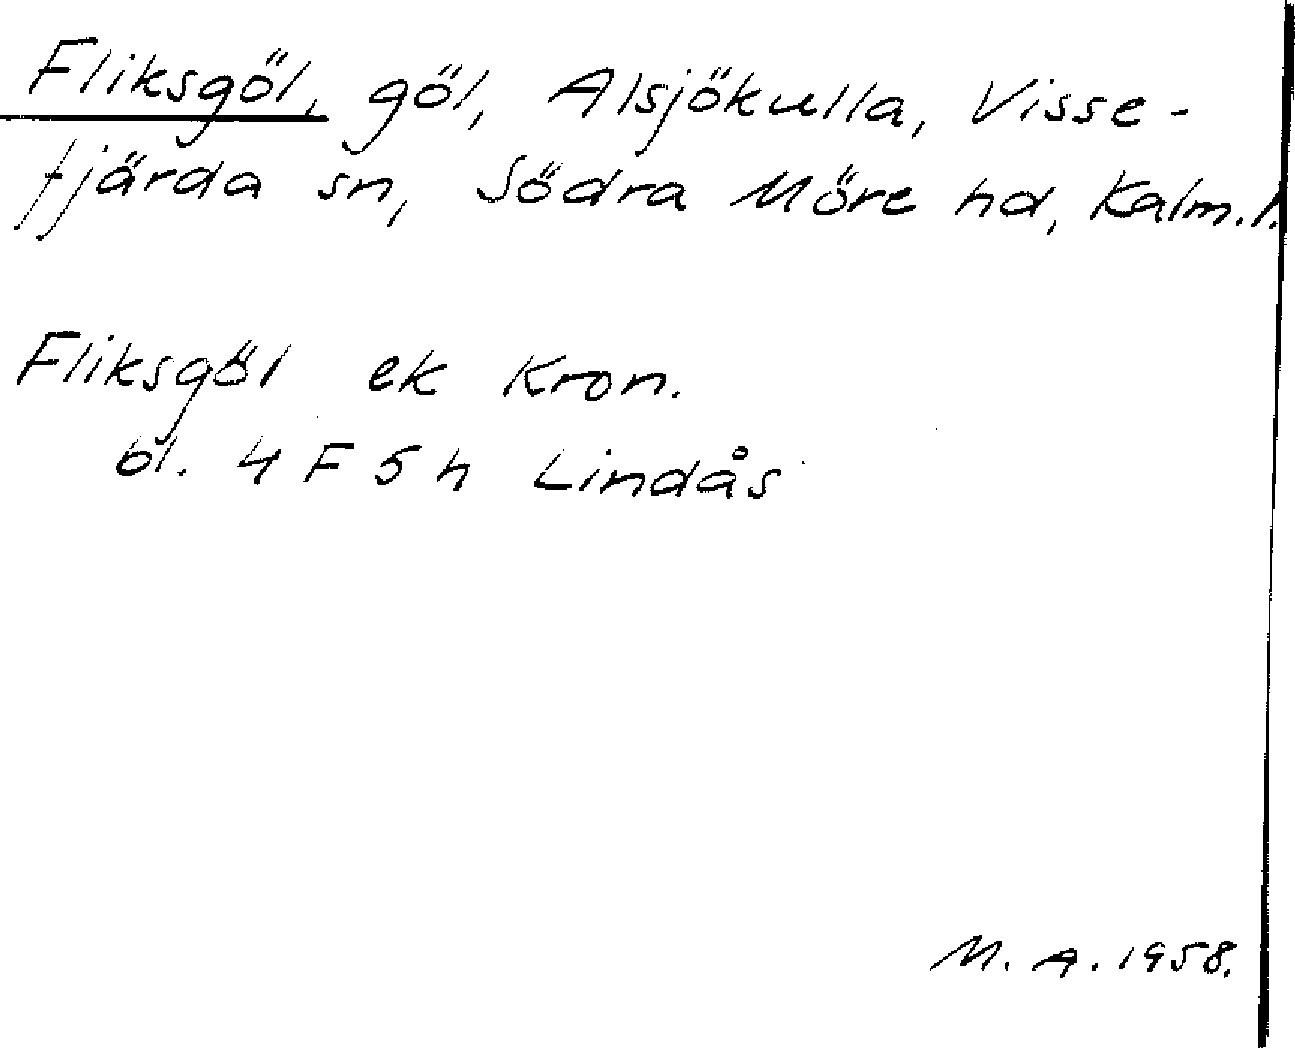 Fliksgöl, göl, Alsjökulla, Visse-
fjärda sn, Södra Möre hd, Kalm.l.
Fliksgöl ek Kron.
bl. 4 F 5 h Lindås
M. A. 1958.